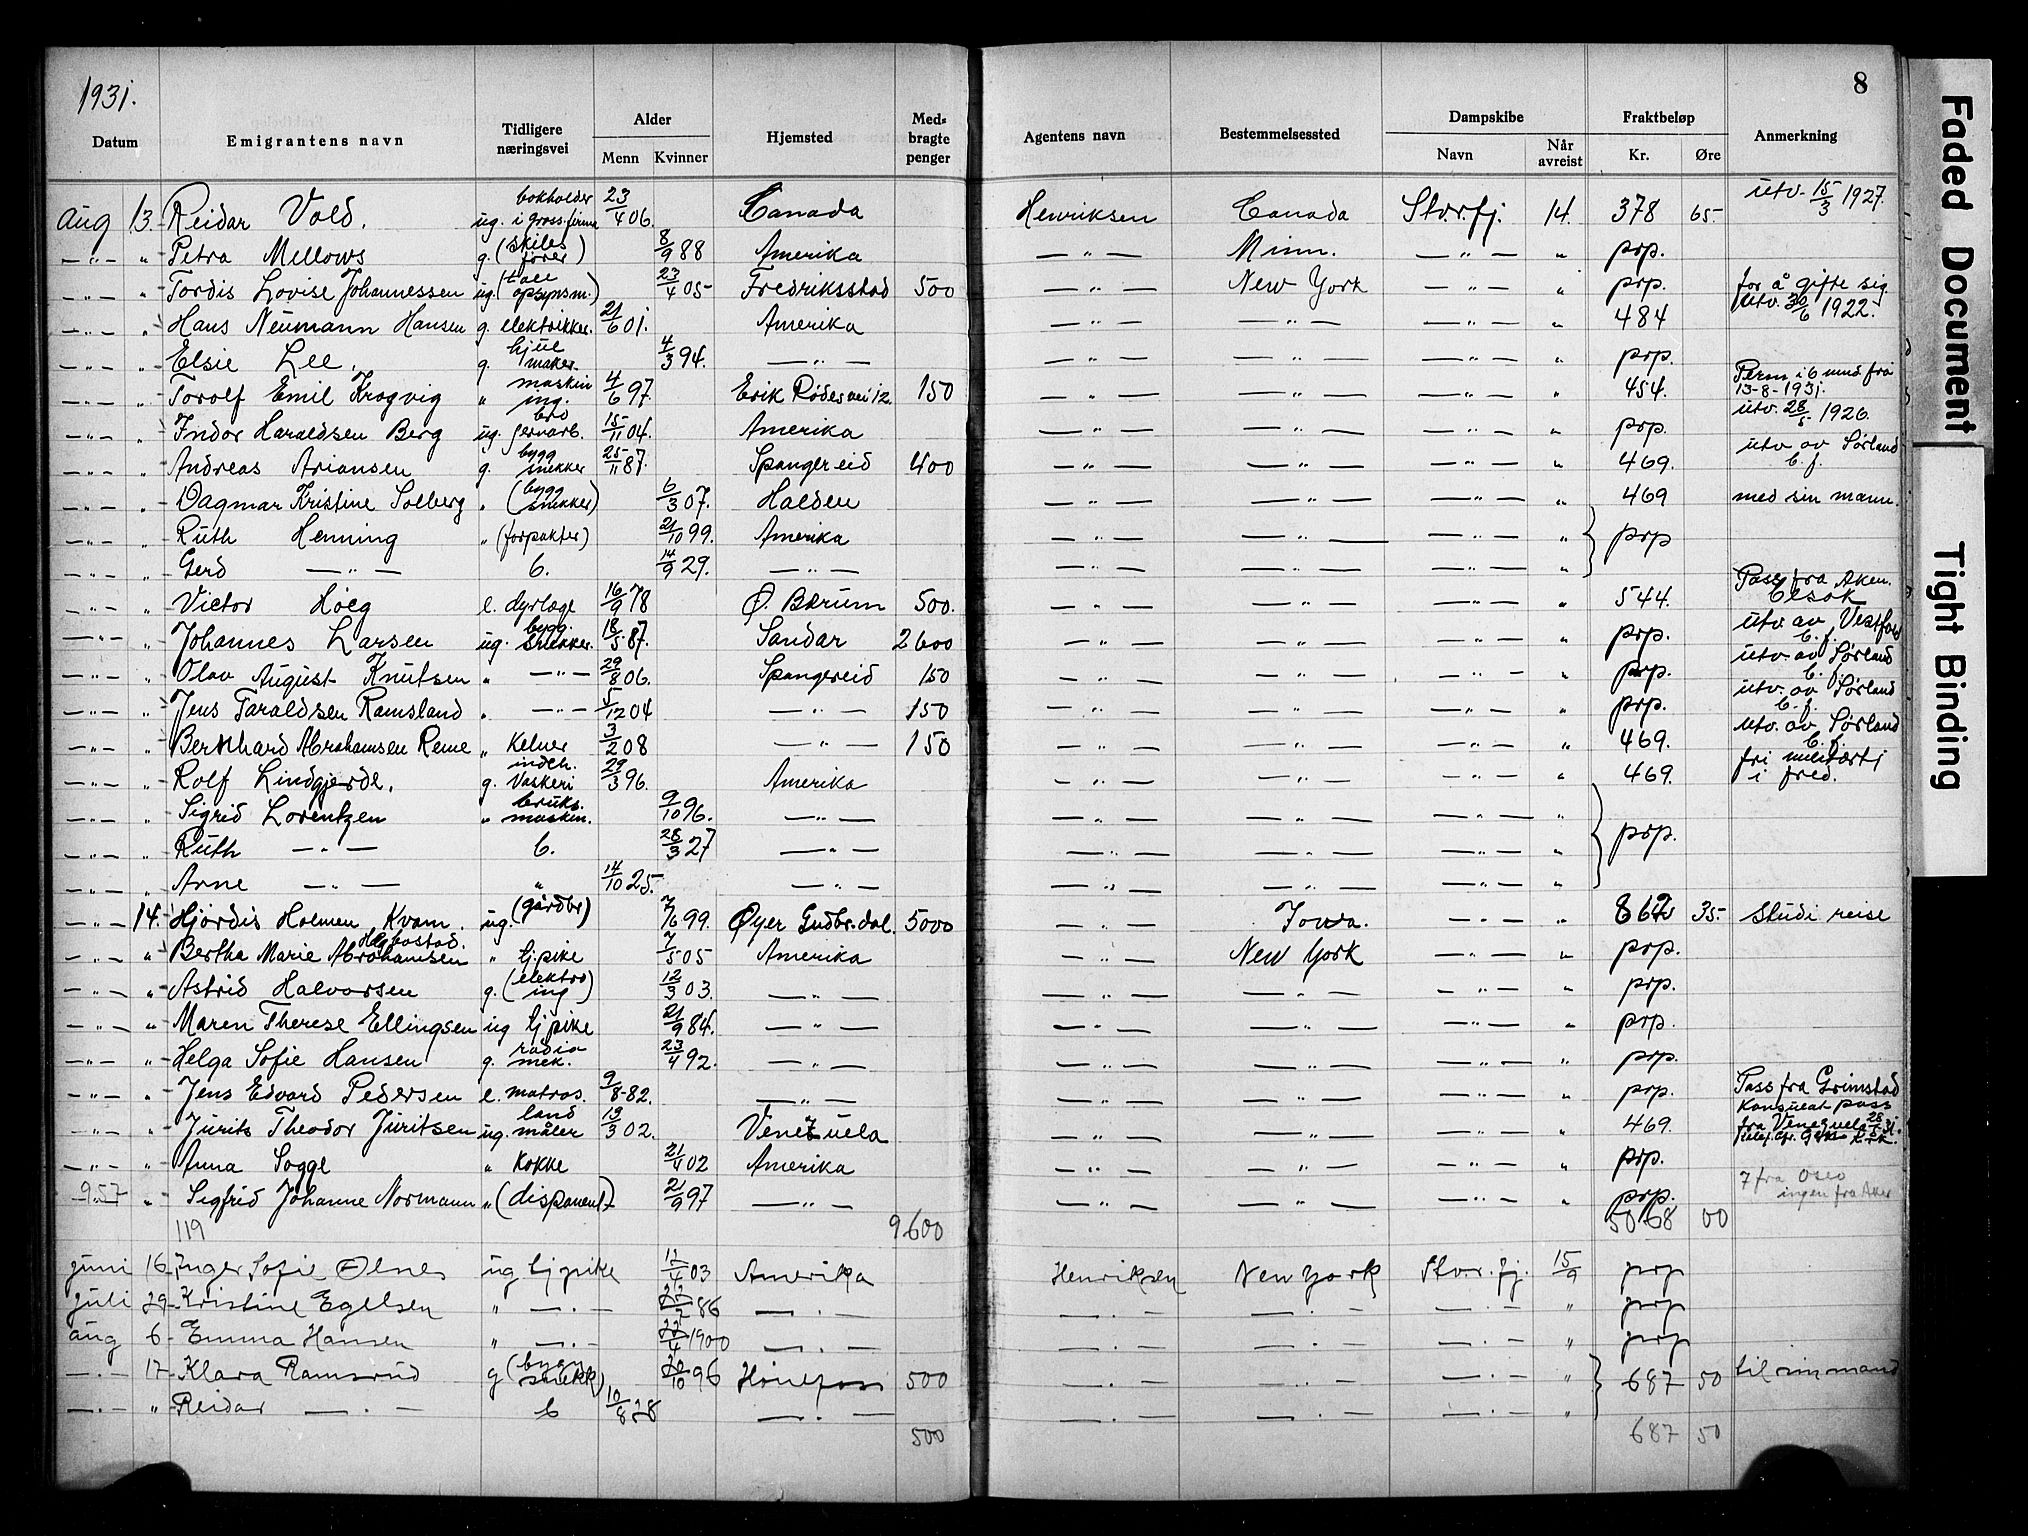 1931.
8
Datum | Emigrantens navn | Tidligere næringsvei | Alder Menn | Kvinner | Hjemsted | Medbragte penger | Agentens navn | Bestemmelsessted | Dampskibe Navn | Når avreist | Fraktbeløp Kr. | Øre | Anmerkning
Aug 13. Reidar Vold. ug. bokholder i gross.firma 23/4 06. Canada Henriksen Canada Stvr.fj. 14. 378 65.- utv. 15/3 1927.
—"— " Petra Mellows g. (skibsfører) 8/9 88 Amerika —"— Minn. —"— " prp.
—"— " Tordis Lovise Johannessen ug. (toll opsynsm.) 23/4 05 Fredriksstad 500 —"— New York —"— " prp. for å gifte sig
—"— " Hans Neumann Hansen g. elektrikker. 21/6 01. Amerika —"— —"— —"— " 484 utv. 30/6 1922.
—"— " Elsie Lee. g. hjulmaker 4/3 94. —"— —"— —"— —"— " prp.
—"— " Torolf Emil Krogvig " maskin ing. 4/6 97 Erik Rødes vei 12. 150 —"— —"— —"— " 454. Perm i 6 mnd. fra 13-8-1931.
—"— " Indor Haraldsen Berg ug. bro jernarb. 15/11 04. Amerika —"— —"— —"— " prp. utv. 28/5 1926.
—"— " Andreas Ariansen g. bygg snekker 25/11 87. Spangereid 400 —"— —"— —"— " 469. utv av Sørland C. f.
—"— " Dagmar Kristine Solberg " (bygg snekker) 6/3 07. Halden —"— —"— —"— " 469 med sin mann.
—"— " Ruth Henning " (forpakter) 21/10 99. Amerika —"— —"— —"— " prp
—"— " Gerd —"— b. 14/9 29. —"— —"— —"— —"— "
—"— " Victor Høeg e. dyrlæge 16/9 78 Ø. Bærum 500. —"— —"— —"— " 544. Pass fra Aken.
—"— " Johannes Larsen ug. bygg. snekker. 18/5 87. Sandar 2600 —"— —"— —"— " prp. utv av Vestfold C. f.
—"— " Olav August Knutsen " —"— 29/8 06. Spangereid 150 —"— —"— —"— " prp. utv. av Sørland C. f.
—"— " Jens Taraldsen Ramsland " —"— 5/12 04 —"— 150 —"— —"— —"— " prp. utv. av Sørland C. f.
—"— " Bernhard Abrahamsen Reme " Kelner 3/2 08 —"— 150 —"— —"— —"— " 469. utv. av Sørland C. f.
—"— " Rolf Lindgjerde. g. indeh. Vaskeri 29/3 96. Amerika —"— —"— —"— " 469. fri militært i fred.
—"— " Sigrid Lorentzen " bruks. maskin. 9/10 96. —"— —"— —"— —"— " prp.
—"— " Ruth —"— b. 28/3 27 —"— —"— —"— —"— "
—"— " Arne —"— " 14/10 25. —"— —"— —"— —"— "
—"— 14. Hjördis Holmen Kvam. ug. (gårdbr) 7/6 99. Øyer Gudbr.dal. 5000 —"— Iowa. —"— " 862 35.- studi reise
—"— " Bertha Marie Abrahamsen Hægbostad. " tj.pike 7/5 05 Amerika —"— New York —"— " prp.
—"— " Astrid Halvorsen g. (elektro ing) 12/3 03. —"— —"— —"— —"— " prp.
—"— " Maren Therese Ellingsen ug tjpike 21/9 84. —"— —"— —"— —"— " prp.
—"— " Helga Sofie Hansen g. radio mek. 23/4 92. —"— —"— —"— —"— " prp.
—"— " Jens Edvard Pedersen e. matros. 9/8-82. —"— —"— —"— —"— " prp. Pass fra Grimstad
—"— " Jurits Theodor Juritsen ug. land måler 13/3 02. Venezuela —"— —"— —"— " 469. Konsulat pass fra Venezuela 28/5 31.
—"— " Anna Sogge " kokke 21/4 02 Amerika —"— —"— —"— " prp.
957 " Sigfrid Johanne Normann " (disponent) 21/9 97 —"— —"— —"— —"— " prp. 7 fra Oslo ingen fra Aker
119 9600 5068 00
juni 16. Inger Sofie Olnes ug tjpike 17/4 03 Amerika Henriksen New York Stvr.fj. 15/9 prp
juli 29. Kristine Egelsen " —"— 22/2 86 —"— —"— —"— —"— " prp
aug 6. Emma Hansen " —"— 22/4 1900 —"— —"— —"— —"— " prp
—"— 17. Klara Ramsrud g (bygg snekk) 20/10 96 Hönefoss 500 —"— —"— —"— " 687 50 til sin mand
—"— " Reidar —"— b 10/8 28 —"— —"— —"— —"— "
500 687 50
Faded Document
Tight Binding